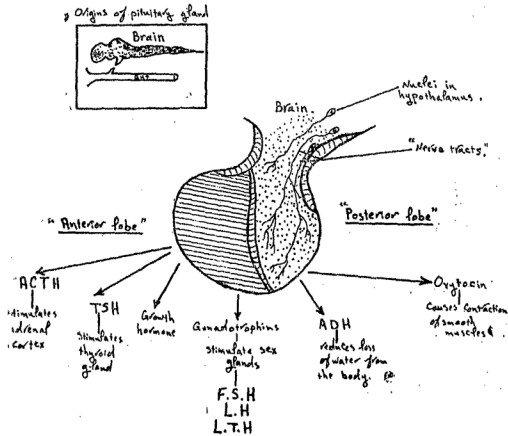 Origins of pituitary gland
Brain
Gut
Brain.
Nuclei in
hypothalamus.
"Nerve tracts."
"Anterior lobe"
"Posterior lobe"
ACTH
stimulates
adrenal
cortex
TSH
Stimulates
thyroid
gland
Growth
hormone
Gonadotrophins
stimulate sex
glands
F.S.H
L.H
L.T.H
ADH
reduces loss
of water from
the body.
Oxytocin
Causes contraction
of smooth
muscles